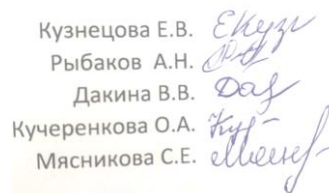 Кузнецова Е.В. ЕКузн
Рыбаков А.Н.
Дакина В.В.
Кучеренкова О.А.
Мясникова С.Е.